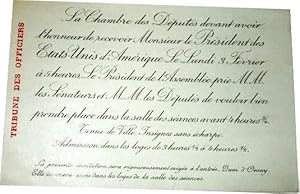 TRIBUNE DES OFFICIERS
La Chambre des Députés devant avoir
l'honneur de recevoir Monsieur le Président des
Etats Unis d'Amérique Le Lundi 3 Février
à 5 heures Le Président de l'Assemblée prie M.M.
les Sénateurs et M.M. les Députés de vouloir bien
prendre place dans la salle des séances avant 4 heures ¾
Tenue de Ville Insignes sans écharpe
Admission dans les loges de 3 heures ¼ à 4 heures ¾.
La présente invitation sera rigoureusement exigée à l'entrée Quai d'Orsay.
Elle donnera accès dans les loges de la salle des séances.